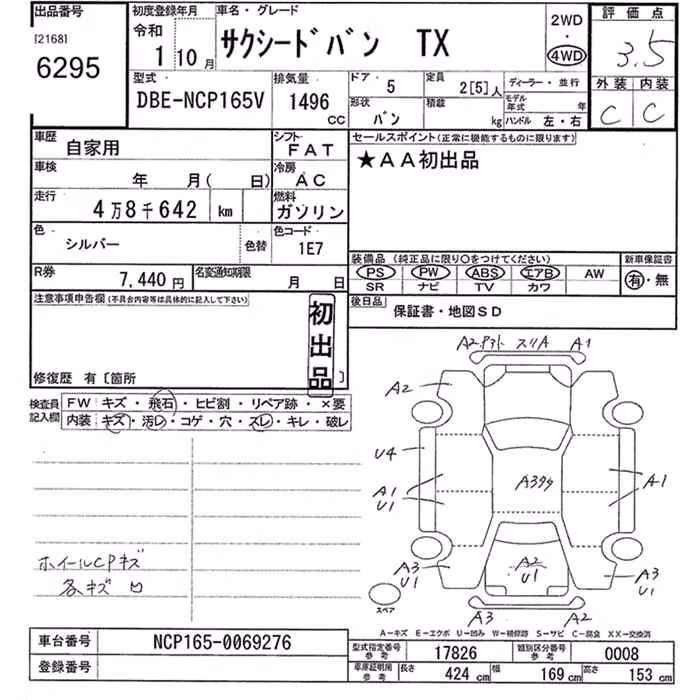 出品番号 初度登録年月 車名・グレード 2WD 評価点
[2168] 令和 ・
6295 1 10月 サクシードバン TX 4WD 3.5
型式 排気量 ドア・ 5 定員 2[5]人 ディーラー・並行 外装 内装
DBE-NCP165V 1496 CC 形状 バン 積載 kg モデル年式 年 C C
ハンドル 左・右
車歴 自家用 シフト FAT セールスポイント(正常に機能するものに限ります)
車検 年 月( 日) 冷房 AC ★AA初出品
走行 4万8千642 km 燃料 ガソリン
色 シルバー 色替 色コード 1E7
装備品 (純正品に限り○をつけてください) 新車保証書
R券 7,440円 名変通知期限 月 日 PS PW ABS エアB AW 有・無
SR ナビ TV カワ
注意事項申告欄(不具合内容等は具体的に記入して下さい) 後日品 保証書・地図SD
初出品
修復歴 有〔箇所 〕
検査員記入欄 FW キズ・飛石・ヒビ割・リペア跡・×要
内装 キズ・汚レ・コゲ・穴・スレ・キレ・破レ
A2 スリA A1
A2
U4
A1 U1
A3クケ
A1
A3 U1
A2 U1
A3 U1
スペア
A3 A2
ホイールCPキズ
各キズ凹
A-キズ E-エクボ U-凹み W-補修跡 S-サビ C-腐食 XX-交換済
車台番号 NCP165-0069276 型式指定番号参考 17826 類別区分番号参考 0008
登録番号 車庫証明用参考 長さ 424 cm 幅 169 cm 高さ 153 cm